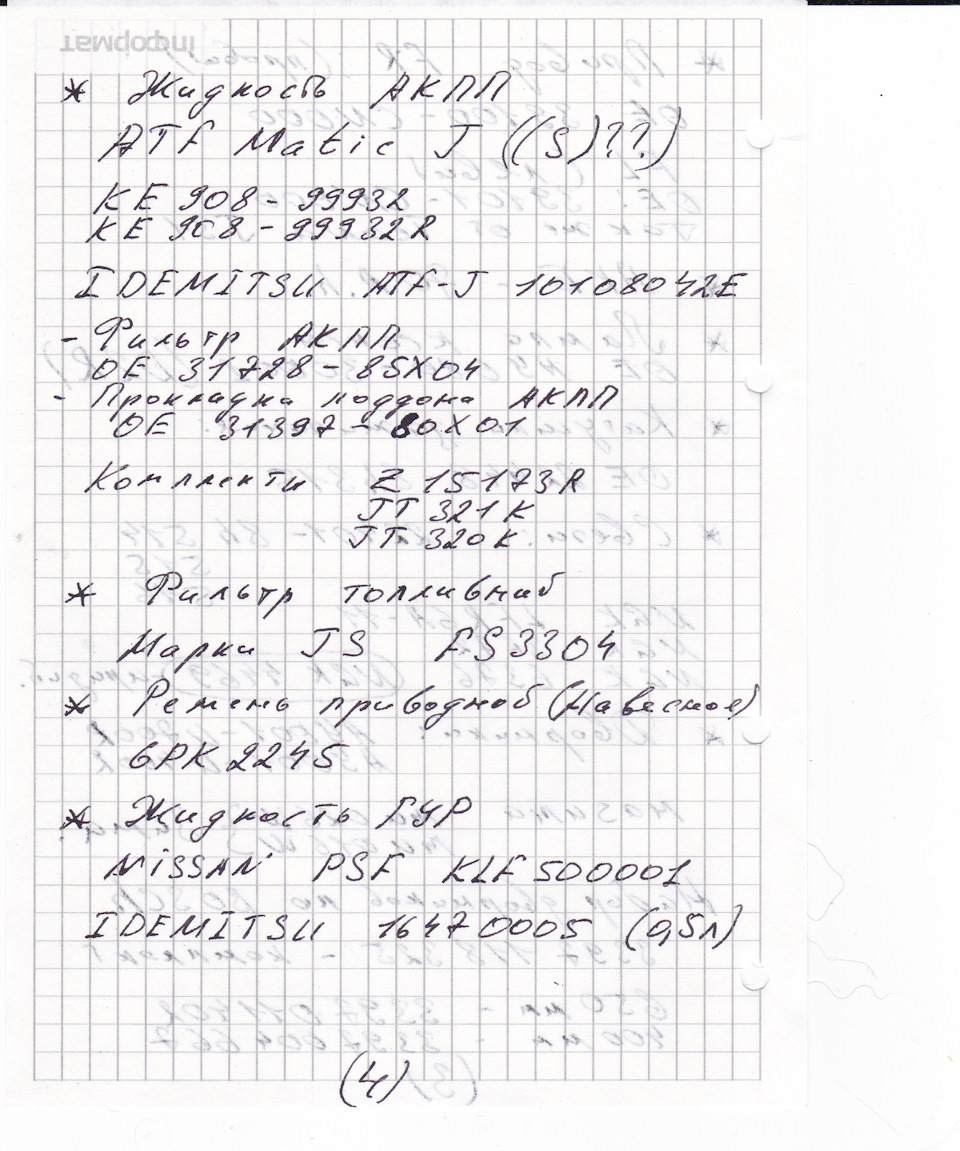 * Жидкость АКПП
ATF Matic J ((S)??)
KE 908-99932
KE 908-99932R
IDEMITSU ATF-J 10108042E
- Фильтр АКПП
OE 31728-85X04
- Прокладка поддона АКПП
OE 31397-80X01
Комплекты Z15173R
JT 321K
JT 320K.
* Фильтр топливный
Марки JS FS3304
* Ремень приводной (Навесное)
6PK2245
* Жидкость ГУР
NISSAN PSF KLF500001
IDEMITSU 16470005 (0,5л)
(4)